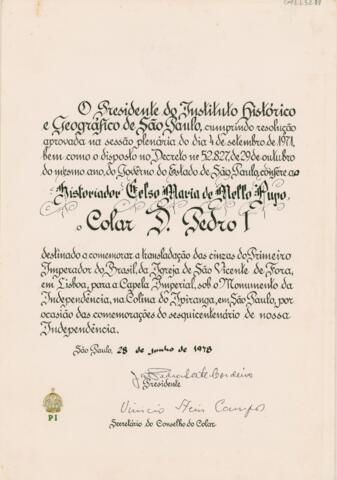 O Presidente do Instituto Histórico
e Geográfico de São Paulo, cumprindo resolução
aprovada na sessão plenária do dia 4 de setembro de 1971,
bem como o disposto no Decreto nº 52.827, de 29 de outubro
do mesmo ano, do Govêrno do Estado de São Paulo, confere ao
Historiador Celso Maria de Mello Pupo
o Colar D. Pedro I
destinado a comemorar a transladação das cinzas do Primeiro
Imperador do Brasil, da Igreja de São Vicente de Fora,
em Lisboa, para a Capela Imperial, sob o Monumento da
Independência, na Colina do Ipiranga, em São Paulo, por
ocasião das comemorações do sesquicentenário de nossa
Independência.
São Paulo, 28 de junho de 1978
Pedro Leite Cordeiro
Presidente
Vinicio Stein Campos
Secretário do Conselho do Colar
PI